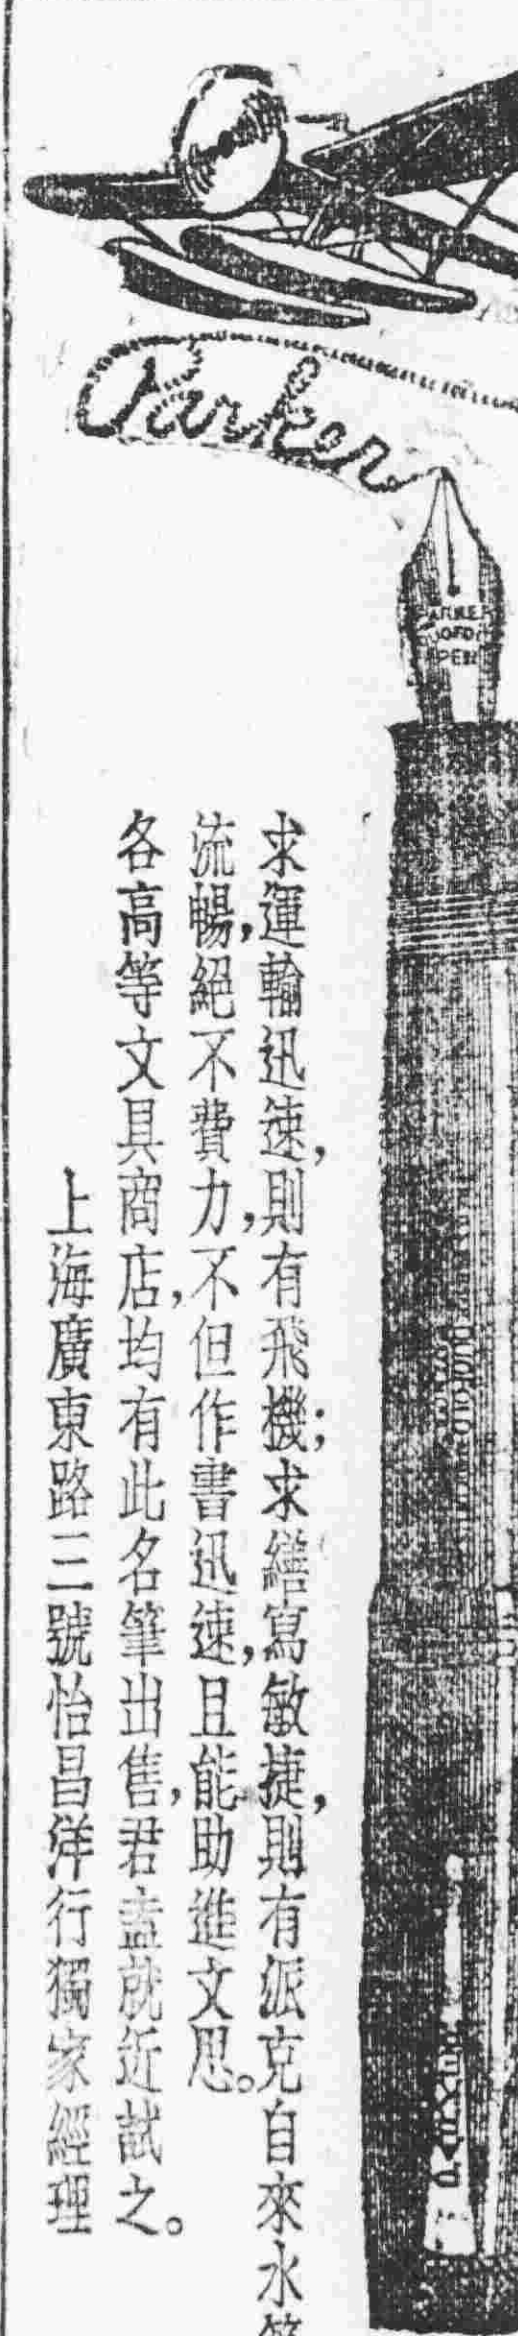 Parker
PARKER
DUOFOLD
PEN
求運輸迅速,則有飛機;求繕寫敏捷,則有派克自來水筆
流暢,絕不費力,不但作書迅速,且能助進文思。
各高等文具商店,均有此名筆出售,君盍就近試之。
上海廣東路三號怡昌洋行獨家經理